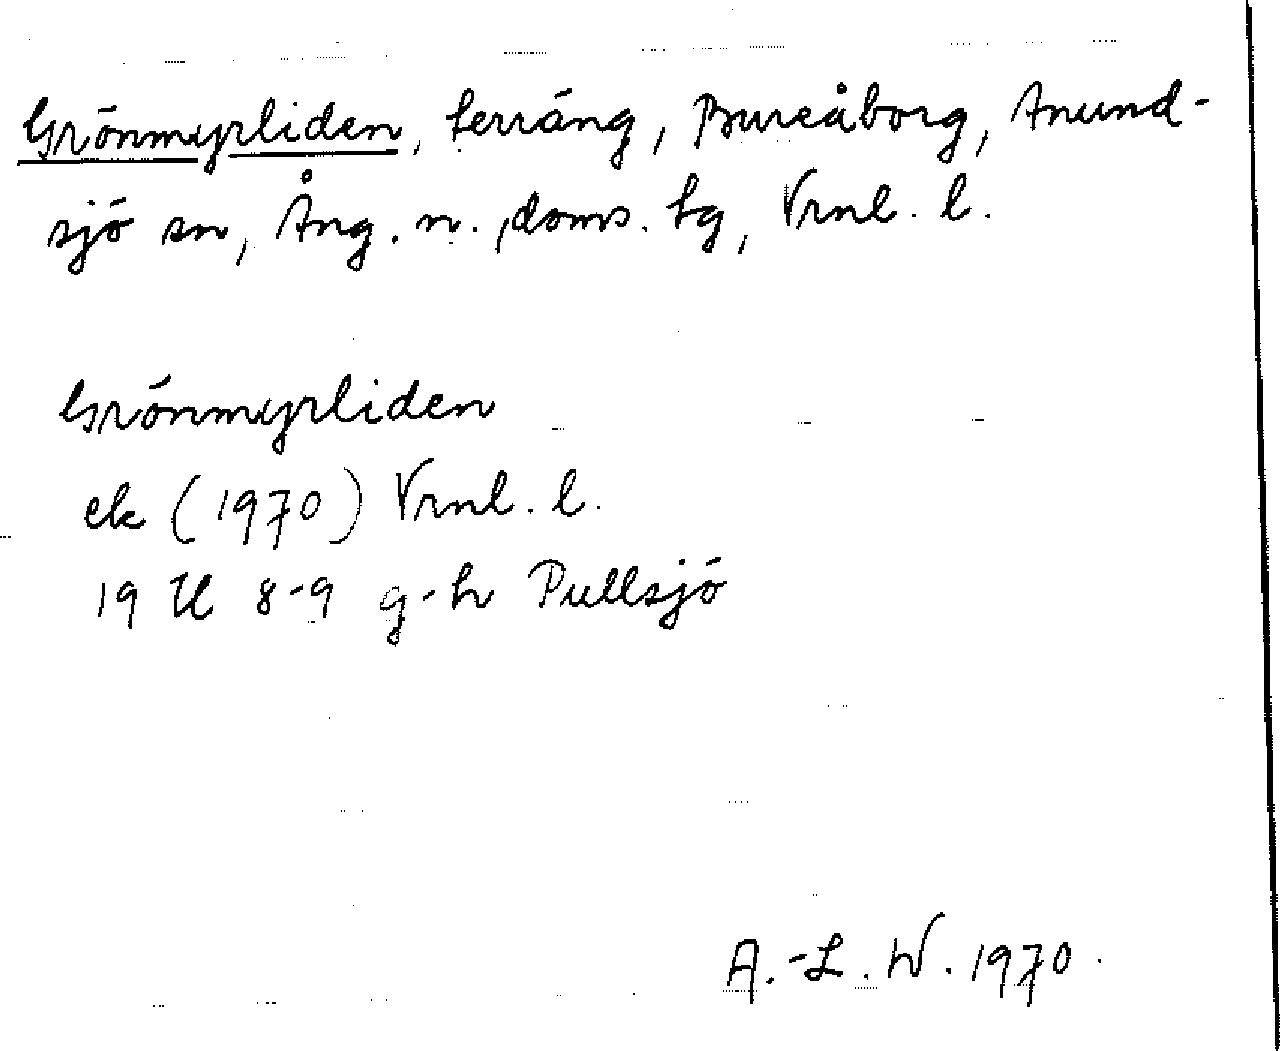 Grönmyrliden, terräng, Bureåborg, Anund-
sjö sn, Ång. n., doms. tg, Vrnl. l.
Grönmyrliden
ek (1970) Vrnl. l.
19 H 8-9 g-h Pullsjö
A.-L. W. 1970.